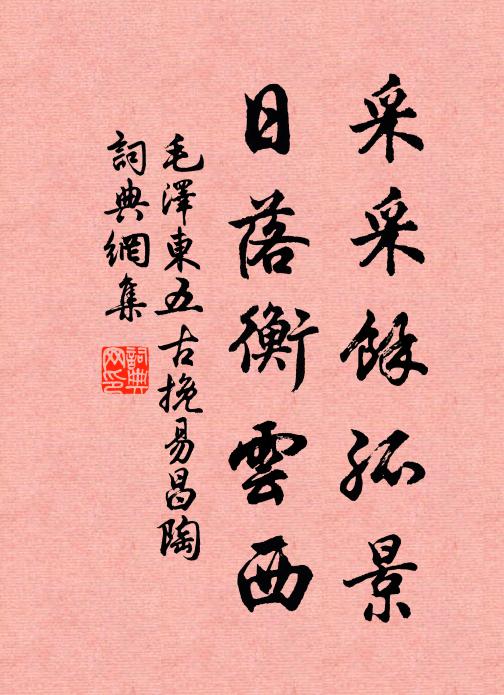 采采餘孤景
日落衡雲西
毛澤東五古挽易昌陶
詞典網集
詞典網印